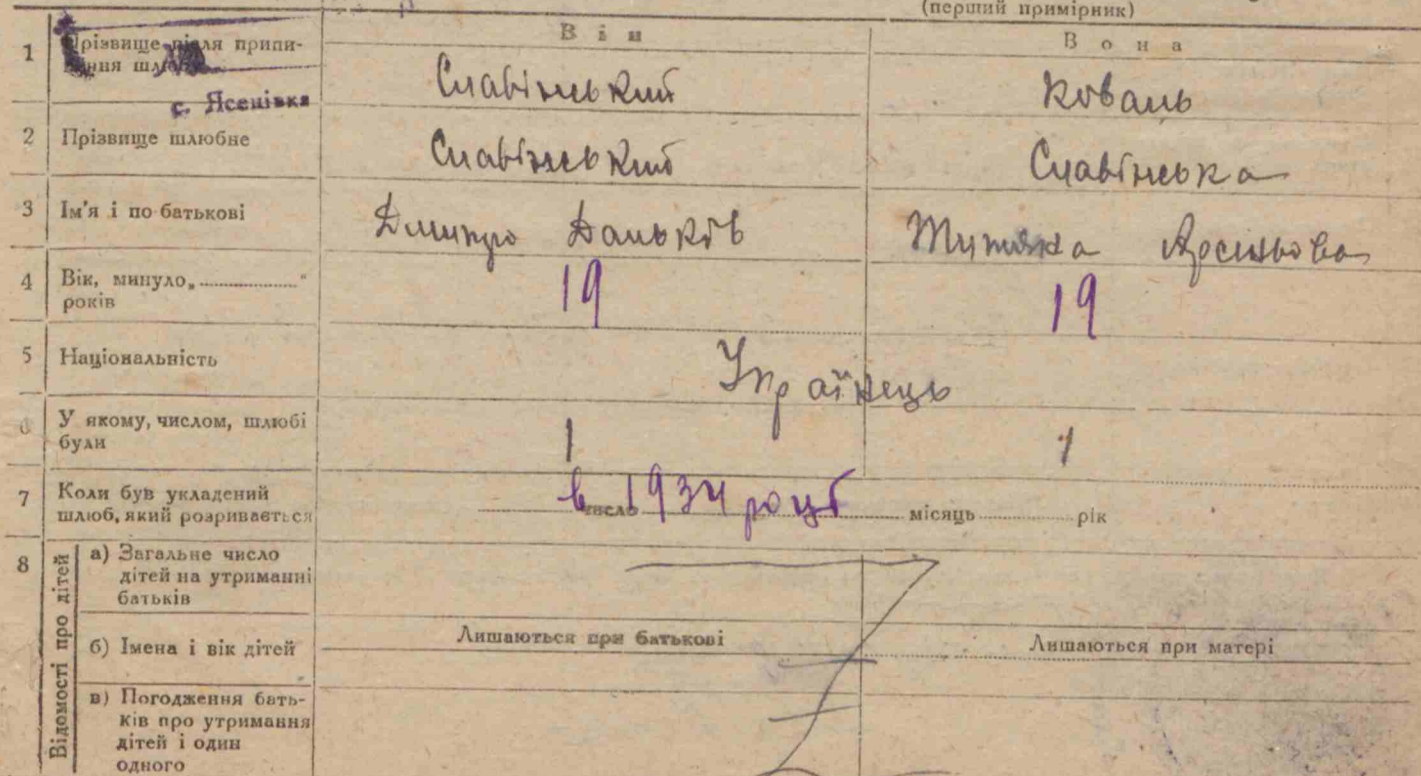 (перший примірник)
1 Прізвище після припинення шлюбу Він Вона
Славінський Коваль
с. Ясенівка
2 Прізвище шлюбне Славінський Славінська
3 Ім'я і по батькові Дмитро Даньків
4 Вік, минуло „............“ років 19 19
5 Національність Українець
6 У якому, числом, шлюбі були 1 1
7 Коли був укладений шлюб, який розривається в 1934 році число місяць рік
8 Відомості про дітей
а) Загальне число дітей на утриманні батьків
б) Імена і вік дітей Лишаються при батькові Лишаються при матері
в) Погодження батьків про утримання дітей і один одного